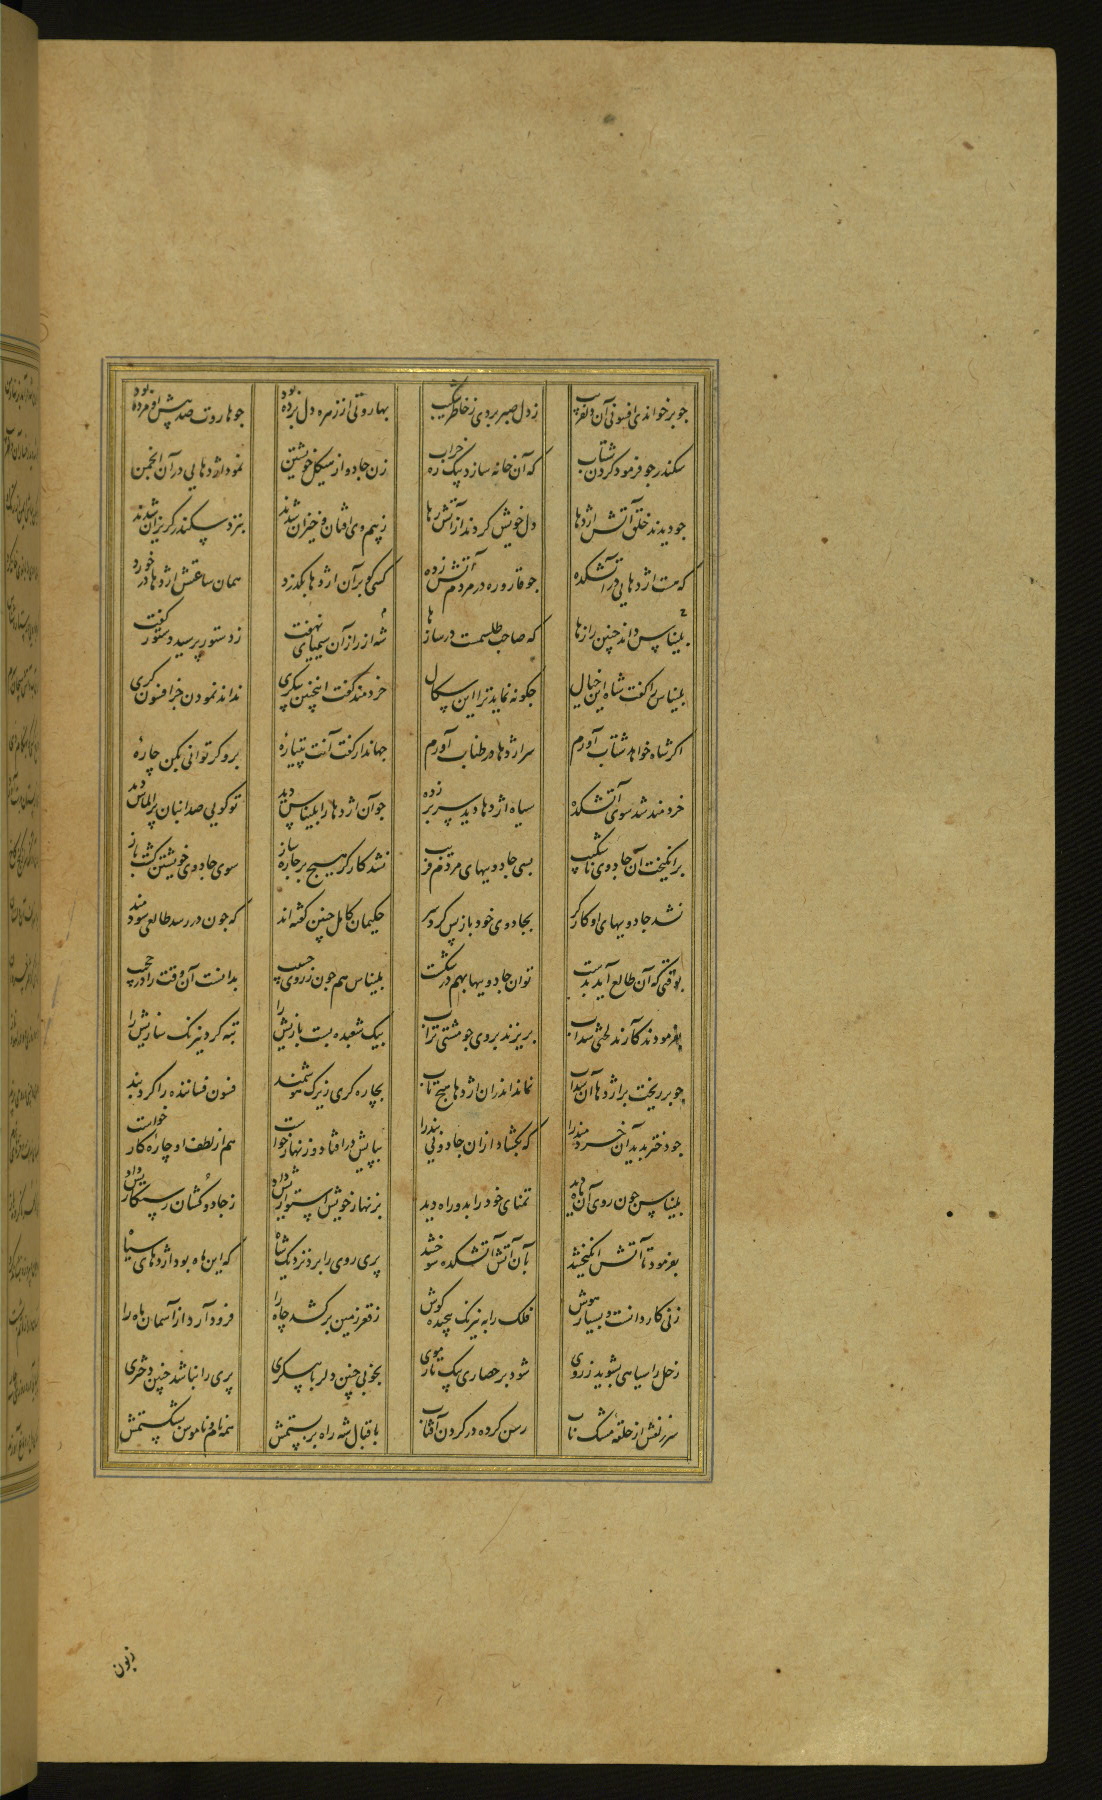 چو برخواندی افسونی آن دلفریب ز دل صبر بردی ز خاطر شکیب بهاروتی از زهره دل برده بود چو هاروت صد پیش او مرده بود
سکندر چو فرمود کردن شتاب که آن خانه سازد پیک ره خراب زن جادو از هیکل خویشتن نمود اژدهایی در آن انجمن
چو دیدند خلق آتشین اژدها دل خویش کردند از آتش رها ز بیم وی افتان و خیزان شدند بنزد سکندر گریزان شدند
که هست اژدهایی در آتشکده چو قاروره در مردم آتش زده کسی کو بر آن اژدها بگذرد همان ساعتش اژدها در خورد
شه از راز آن سیمیای نهفت ز دستور پرسید و دستور گفت بلیناس داند چنین رازها که صاحب طلسمست در سازها
بلیناس را گفت شاه این خیال چگونه نماید ترا این سگال خردمند گفت اینچنین پیکری نداند نمودن جز افسون گری
اگر شاه خواهد شتاب آورم سر اژدها در طناب آورم جهاندار گفت آنت پتیاره برو گر توانی بکن چاره
خردمند شد سوی آتشکده سیاه اژدها دید سر بر زده چو آن اژدها را بلیناس دید تو گویی صدانبان پر الماس دید
برانگیخت آن جادوی ناشکیب بسی جادویهای مردم فریب نشد کارگر هیچ بر چاره ساز سوی جادوی خویشتن گشت باز
نشد جادویهای او کارگر بجادوی خود باز پس کرد سر حکیمان کامل چنین گفته‌اند که چون در رسد طالعی سودمند
بوقتی که آن طالع آید بدست توان جادویها بهم در شکست بلیناس هم چون ز روی حسیب بدانست آن وقت را در حجیب
بفرمود کآرند لختی سداب بریزند بروی چو مشتی تراب بیک شعبده بست بازیش را تبه کرد نیرنگ سازیش را
چو برریخت بر اژدها آن سداب نماند اندران اژدها هیچ تاب بچاره گری زیرک هوشمند فسون فساننده را کرد بند
چو دختر بدید آن خردمند را که بگشاد ازان جادویی بند را بپایش درافتاد و زنهار خواست هم از لطف او چاره کار خواست
بلیناس چون روی آن ماه دید تمنای خود را بدو راه دید بزنهار خویش استواریش داد ز جادو کشان رستگاریش داد
بفرمود تا آتش انگیختند بآن آتش آتشکده سوختند پری روی را برد نزدیک شاه که این ماه بود اژدهای سیاه
زنی کاردانست و بسیار هوش فلک را به نیرنگ پیچیده گوش ز قعر زمین برکشد چاه را فرود آرد از آسمان ماه را
زحل را سیاهی بشوید ز روی شود بر حصاری بیک تار موی بخوبی چنین دلربا پیکری پری را نباشد چنین دختری
سر زلفش از حلقه مشک ناب رسن کرده در گردن آفتاب باقبال شه راه بربستمش همه نام و ناموس بشکستمش
زبون